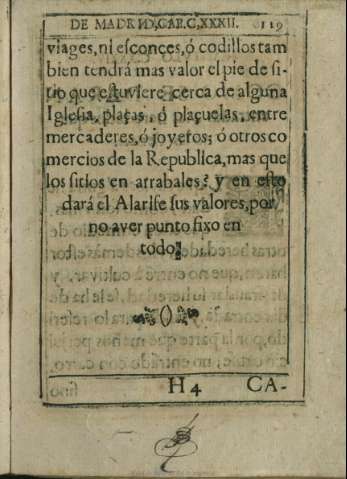 DE MADRID, CAP. C, XXXII. 119
viages, ni esconces, ó codillos tam
bien tendrá mas valor el pie de si-
tio que estuviere cerca de alguna
Iglesia, plaças, ó plaçuelas, entre
mercaderes, ó joyeros; ó otros co
mercios de la Republica, mas que
los sitios en arrabales; y en esto
dará el Alarife sus valores, por
no aver punto fixo en
todo.
H4 CA-